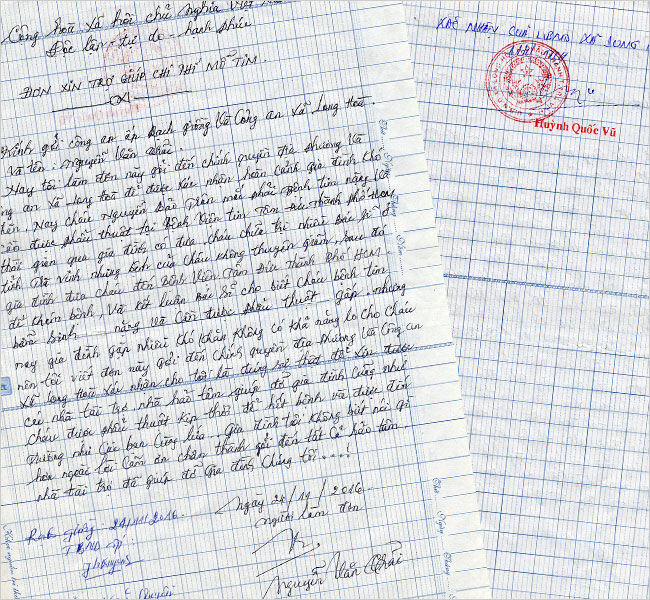 Cộng hoà xã hội chủ nghĩa Việt Nam
Độc lập - tự do - hạnh phúc
ĐƠN XIN TRỢ GIÚP CHI PHÍ MỔ TIM
Kính gởi công an ấp Rạch giồng Và Công an xã Long Hoà.
Tôi tên: Nguyễn Văn
Nay tôi làm đơn này gởi đến chính quyền địa phương Và
công an xã Long Hoà để được xác nhận hoàn cảnh gia đình khó
khăn. Nay cháu Nguyễn Tiên mắc phải bệnh tim nặng Và
cần được phẫu thuật tại Bệnh Viện tim Tâm Đức thành phố HCM
thời gian qua gia đình có đưa cháu chữa trị nhiều bác sĩ ở
tỉnh nhưng bệnh của cháu không thuyên giảm, sau đó
gia đình đưa cháu đến Bệnh Viện Tâm Đức Thành Phố HCM
để khám bệnh, Và kết luận bác sĩ cho biết cháu bệnh tim
bẩm sinh nặng Và Cần được phẫu thuật gấp, nhưng
nay gia đình gặp nhiều khó khăn không có khả năng lo cho cháu
nên tôi viết đơn này gởi đến chính quyền địa phương Và Công an
xã Long Hoà xác nhận cho tôi là đúng sự thật để xin được
các nhà tài trợ, nhà hảo tâm giúp đỡ gia đình cũng như
cháu được phẫu thuật kịp thời để hết bệnh và được đến
trường như các bạn cùng lứa... Gia đình tôi không biết nói gì
hơn ngoài lời cảm ơn chân thành gởi đến tất cả hảo tâm
nhà tài trợ đã giúp đỡ gia đình chúng tôi...!
Ngày 24/11/2016
người làm đơn
Nguyễn Văn
Rạch giồng 24/11/2016
TBND ấp
XÁC NHẬN CỦA UBND XÃ LONG
Huỳnh Quốc Vũ